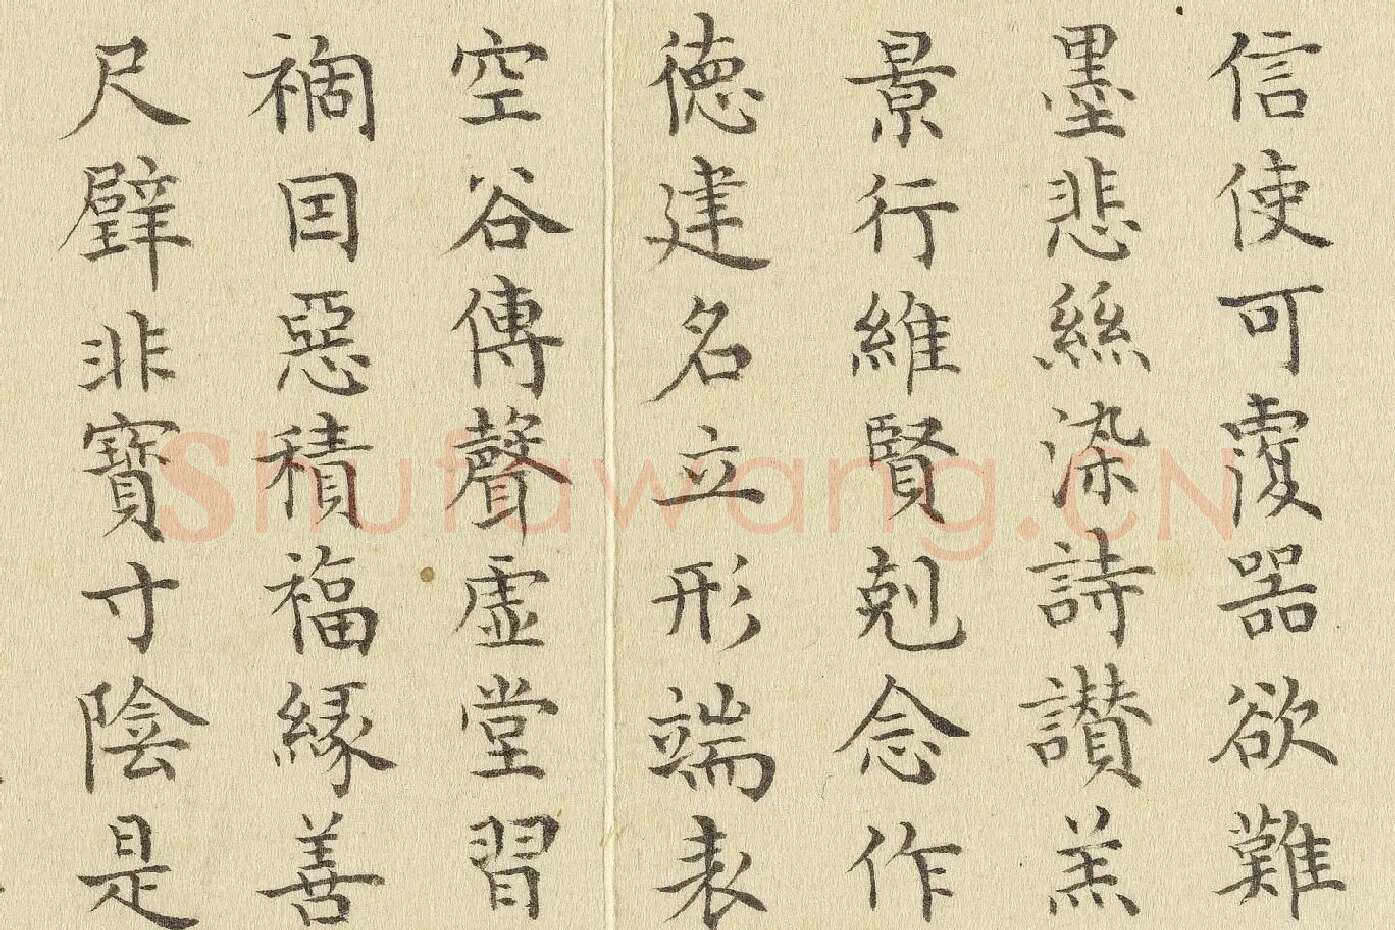 信使可覆器欲難
墨悲絲染詩讃羔
景行維賢剋念作
德建名立形端表
空谷傳聲虛堂習
禍因惡積福緣善
尺璧非寶寸陰是
Shufawang.CN